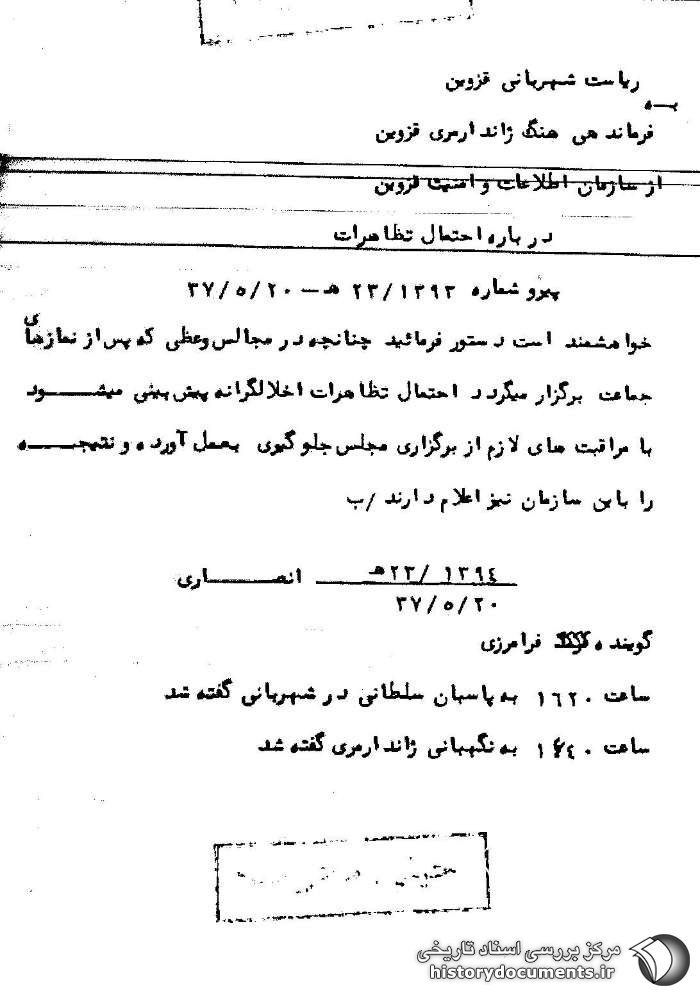 ریاست شهربانی قزوین
به
فرماندهی هنگ ژاندارمری قزوین
از سازمان اطلاعات و امنیت قزوین
درباره احتمال تظاهرات
پیرو شماره ۲۳/۱۳۹۳ هـ – ۳۷/۵/۲۰
خواهشمند است دستور فرمائید چنانچه در مجالس وعظی که پس از نمازهای
جماعت برگزار میگردد احتمال تظاهرات اخلالگرانه پیش بینی میشود
با مراقبت های لازم از برگزاری مجلس جلوگیری بعمل آورده و نتیجه
را باین سازمان نیز اعلام دارند /ب
۲۳/۱۳۹٤هـ انصاری
۳۷/۵/۲۰
گوینده فرامرزی
ساعت ۱٦۲۰ به پاسبان سلطانی در شهربانی گفته شد
ساعت ۱٦٤۰ به نگهبانی ژاندارمری گفته شد
مرکز بررسی اسناد تاریخی
historydocuments.ir